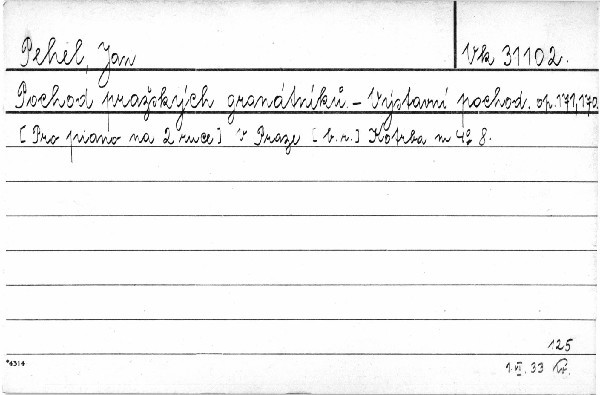 Pehel, Jan
Vk 31102.
Pochod pražských granátníků. – Výstavní pochod. op. 171, 170.
[Pro piano na 2 ruce] V Praze [b.r.] Kotrba m 4° 8.
125
*4314
1.VI.33